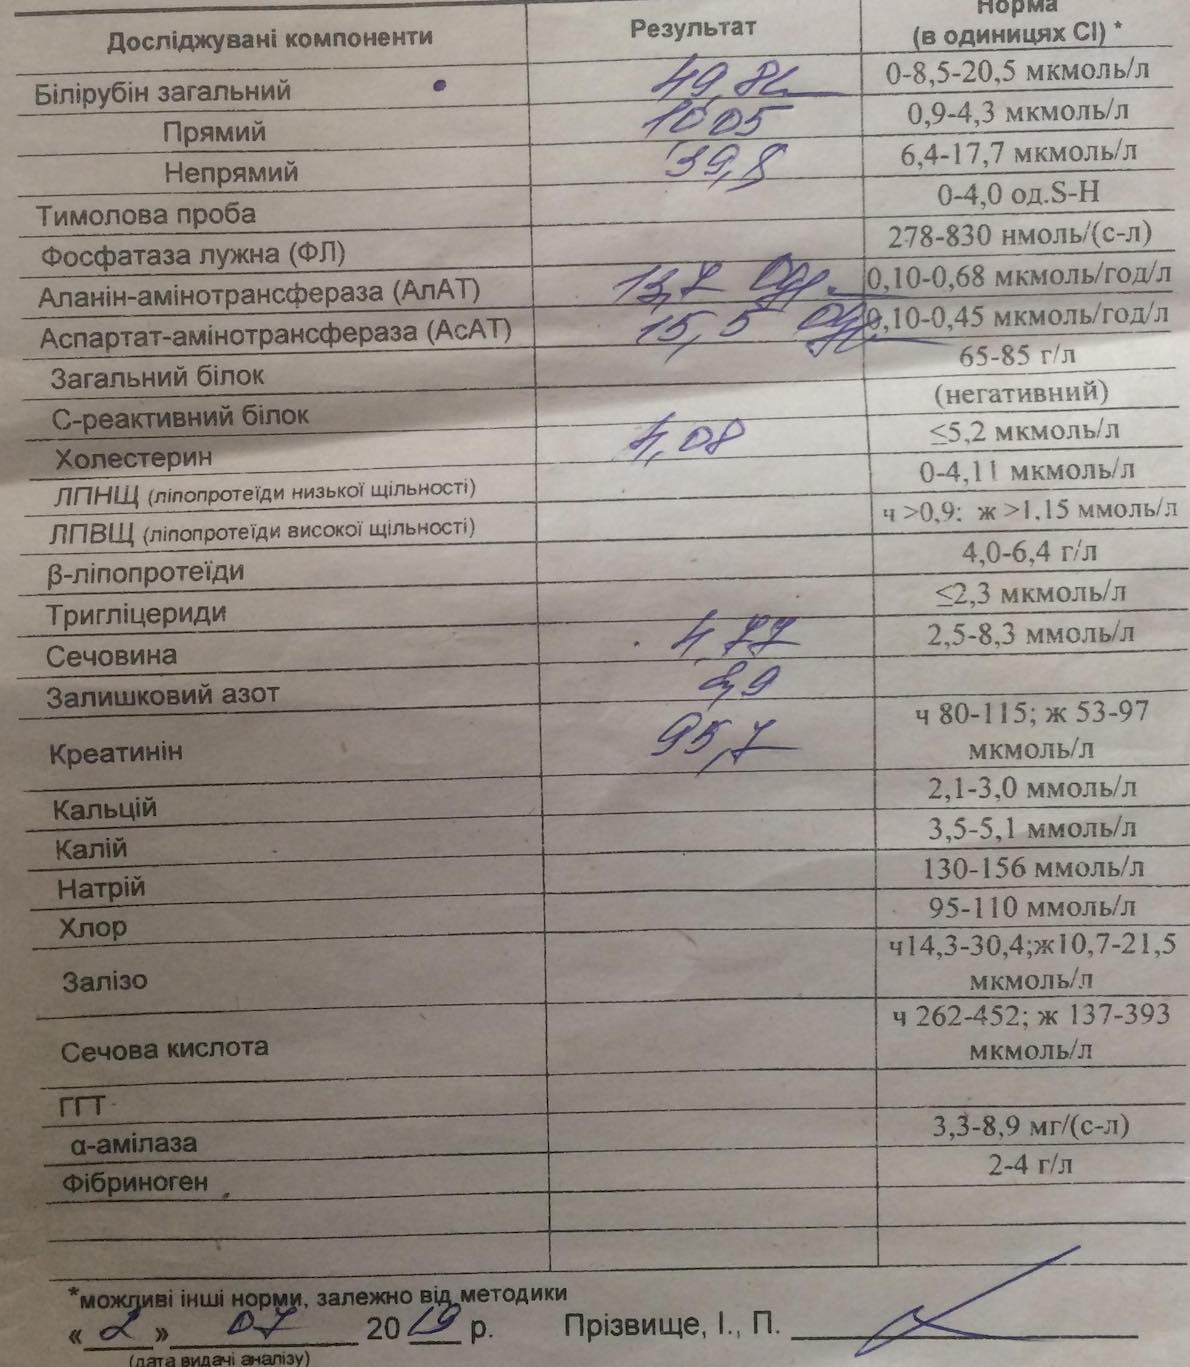 Досліджувані компоненти Результат Норма (в одиницях СІ) *
Білірубін загальний 49,86 0-8,5-20,5 мкмоль/л
Прямий 1005 0,9-4,3 мкмоль/л
Непрямий 39,8 6,4-17,7 мкмоль/л
Тимолова проба 0-4,0 од.S-H
Фосфатаза лужна (ФЛ) 278-830 нмоль/(с-л)
Аланін-амінотрансфераза (АлАТ) 13,7 Од. 0,10-0,68 мкмоль/год/л
Аспартат-амінотрансфераза (АсАТ) 15,5 Од. 0,10-0,45 мкмоль/год/л
Загальний білок 65-85 г/л
С-реактивний білок (негативний)
Холестерин 4,08 ≤5,2 мкмоль/л
ЛПНЩ (ліпопротеїди низької щільності) 0-4,11 мкмоль/л
ЛПВЩ (ліпопротеїди високої щільності) ч >0,9: ж >1,15 ммоль/л
β-ліпопротеїди 4,0-6,4 г/л
Тригліцериди ≤2,3 мкмоль/л
Сечовина 4 77 2,5-8,3 ммоль/л
Залишковий азот 8,9
Креатинін 95,7 ч 80-115; ж 53-97 мкмоль/л
Кальцій 2,1-3,0 ммоль/л
Калій 3,5-5,1 ммоль/л
Натрій 130-156 ммоль/л
Хлор 95-110 ммоль/л
Залізо ч14,3-30,4;ж10,7-21,5 мкмоль/л
Сечова кислота ч 262-452; ж 137-393 мкмоль/л
ГГТ
α-амілаза 3,3-8,9 мг/(с-л)
Фібриноген 2-4 г/л
*можливі інші норми, залежно від методики
« 2 » 07 2019 р. Прізвище, І., П.
(дата видачі аналізу)